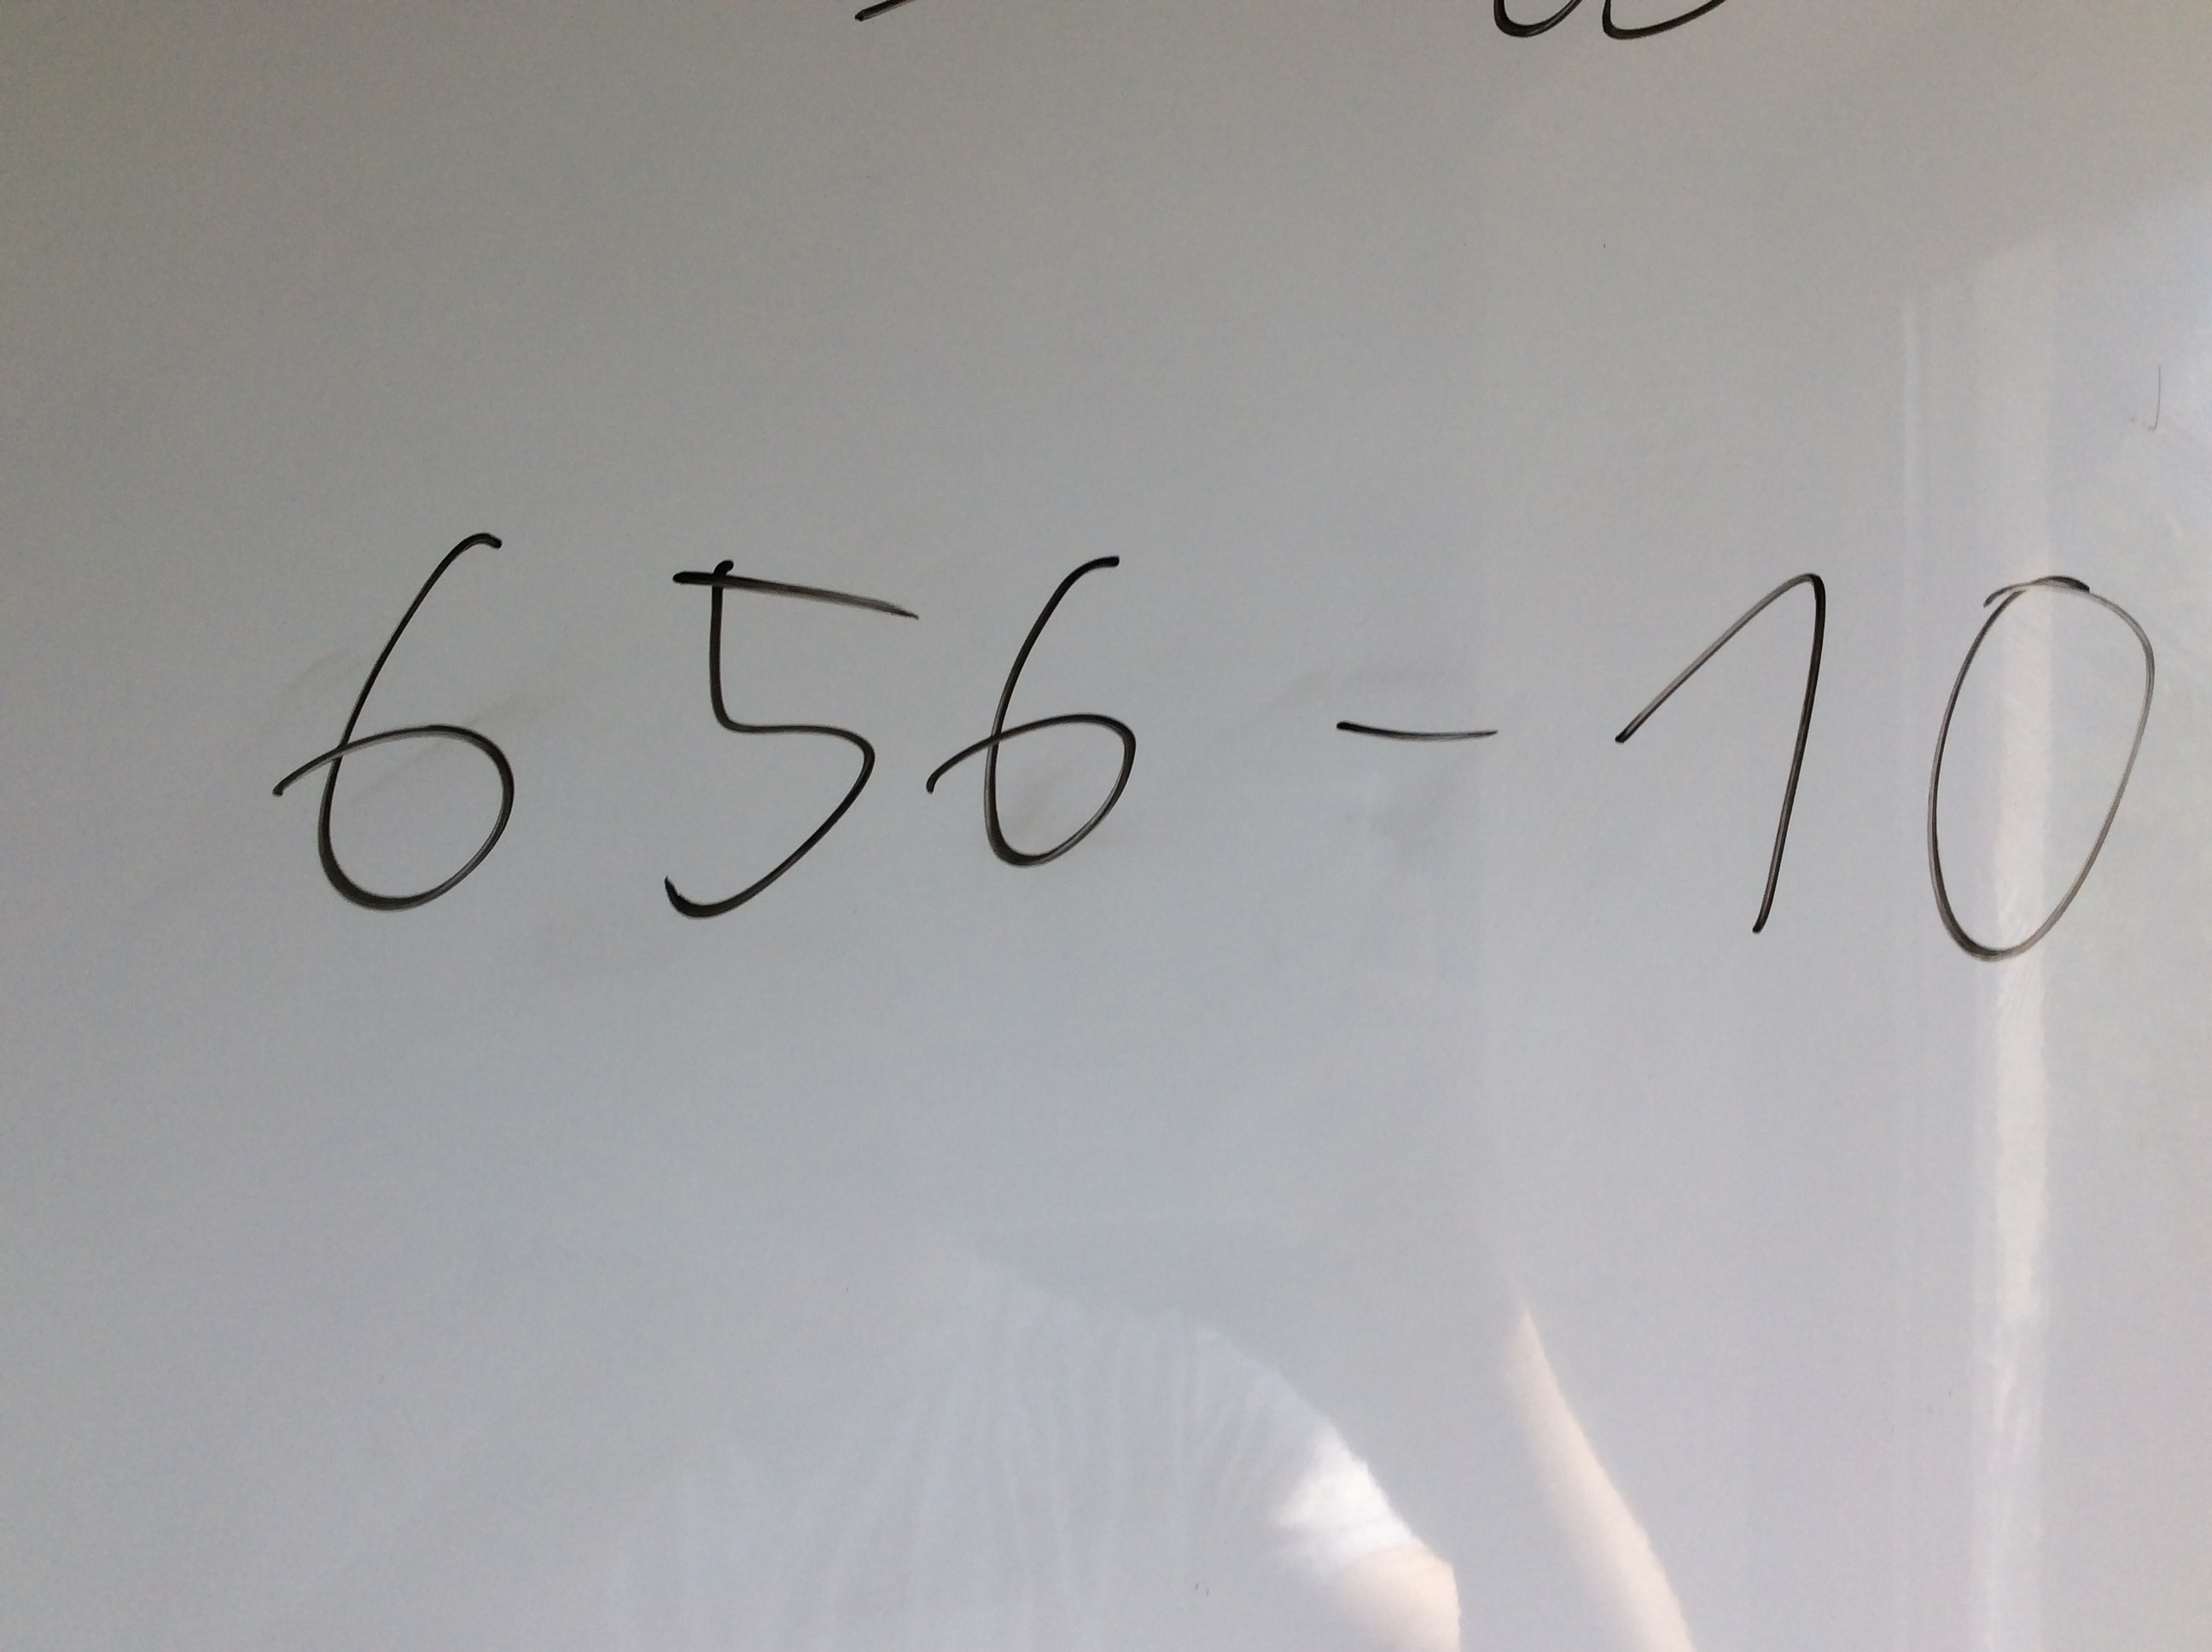 656 - 10